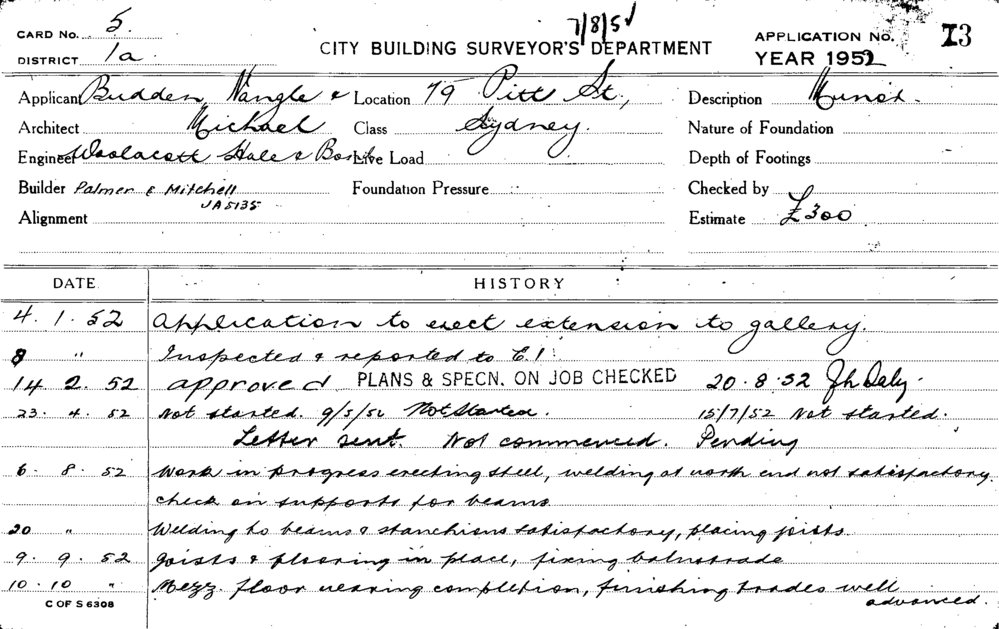 7/8/51
CARD No. 5. CITY BUILDING SURVEYOR'S DEPARTMENT APPLICATION No. 13
DISTRICT 1a YEAR 1952
Applicant Budden, Nangle & Location 79 Pitt St, Description
Architect Michael Class Sydney. Nature of Foundation
Engineer Woolacott Hale & Live Load Depth of Footings
Builder Palmer & Mitchell Foundation Pressure Checked by
JA5135
Alignment Estimate £300
DATE HISTORY
4. 1. 52 Application to erect extension to gallery.
8 " Inspected & reported to E.I.
14 2. 52 approved PLANS & SPECN. ON JOB CHECKED 20.8.52 Jh Daly.
23. 4. 52 Not started. 9/5/52 Not Started. 15/7/52 Not started.
Letter sent. Not commenced. Pending
6. 8. 52 Work in progress erecting steel, welding at north end not satisfactory.
check on supports for beams
20 " Welding to beams & stanchions satisfactory, placing joists
9. 9. 52 Joists & flooring in place, fixing balustrade
10. 10 " Mezz. floor nearing completion, finishing trades well
advanced.
C OF S 6308